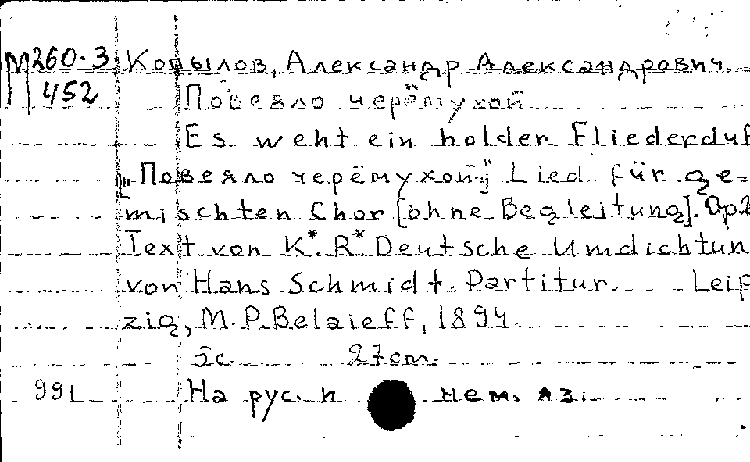 М260-3 Копылов, Александр Александрович
452 Повеяло черёмухой
Es weht ein holder Fliederduf
„Повеяло черёмухой" Lied für ge=
mischten Chor [ohne Begleitung]. Op2
Text von K*. R* Deutsche Umdichtun
von Hans Schmidt. Partitur. Leip
zig, M.P.Belaieff, 1894
5с. 27cm.
99L На рус. и нем. яз.